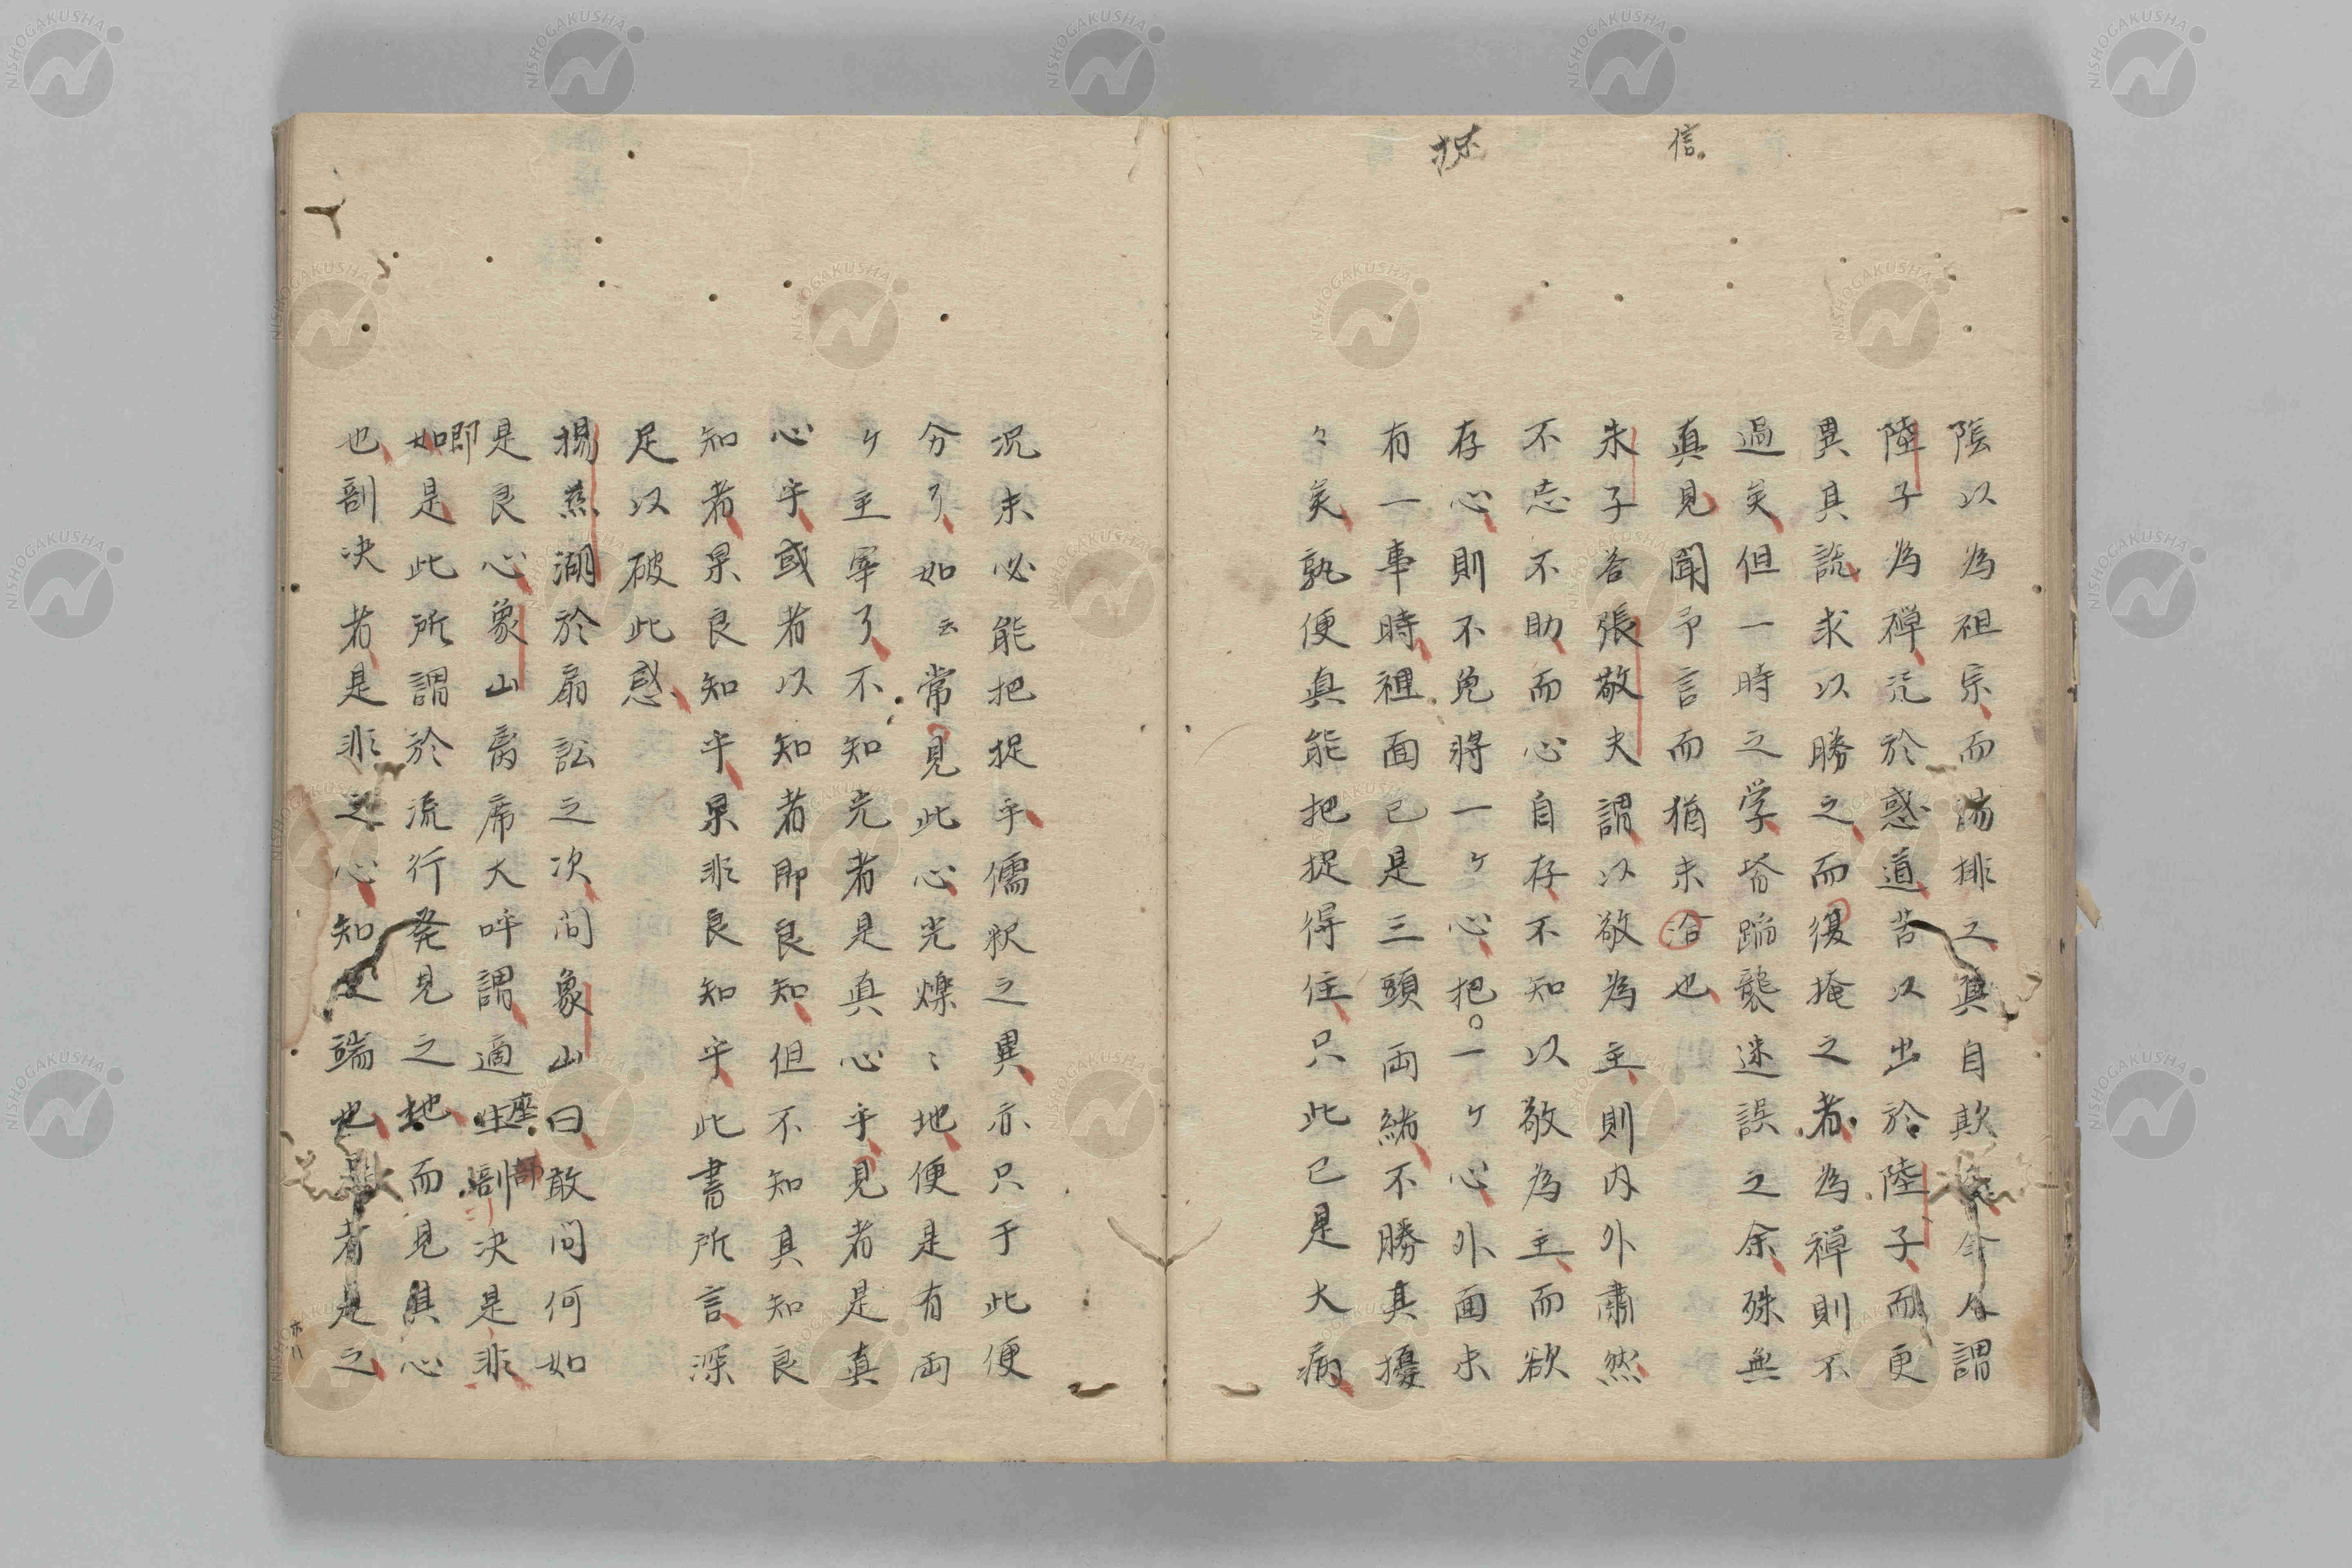 信
陰以為祖宗而陽排之真自欺矣今人謂
陸子為禅沉於惑道苦以出於陸子而更
異其説求以勝之而復掩之者為禅則不
過矣但一時之学沓蹈襲迷誤之余殊無
真見聞予言而猶未洽也
朱子答張敬夫謂以敬為主則内外肅然
不忘不助而心自存不知以敬為主而欲
存心則不免将一ヶ心把一ヶ心外面未
有一事時裡面已是三頭両緒不勝其擾
々矣孰便真能把捉得住只此已是大病
況未必能把捉乎儒釈之異亦只于此便
分了如云常見此心光爍々地便是有両
ヶ主宰了不知光者是真心乎見者是真
心乎或者以知者即良知但不知其知良
知者果良知乎果非良知乎此書所言深
足以破此惑
楊慈湖於扇訟之次問象山曰敢問何如
是良心象山離席大呼謂適坐剖决是非
座
即
如是此所謂於流行発見之地而見其心
也剖决者是非之心知之端也是者是之